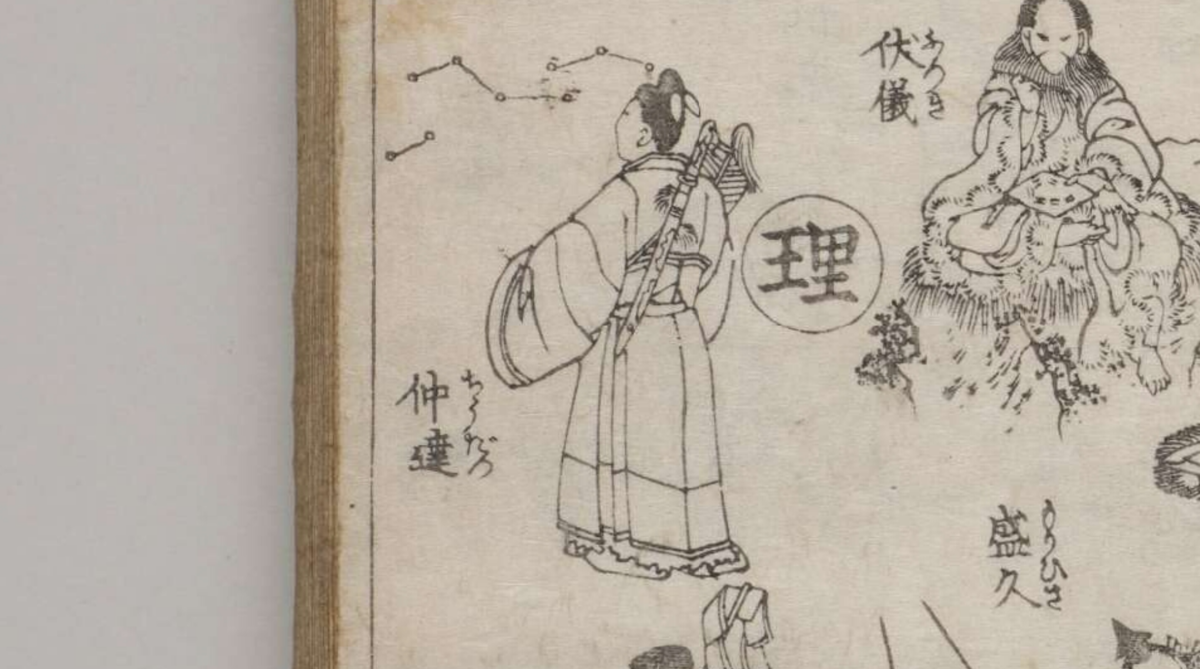 伏儀
ふつき
理
仲達
ちうだつ
盛久
もりひさ